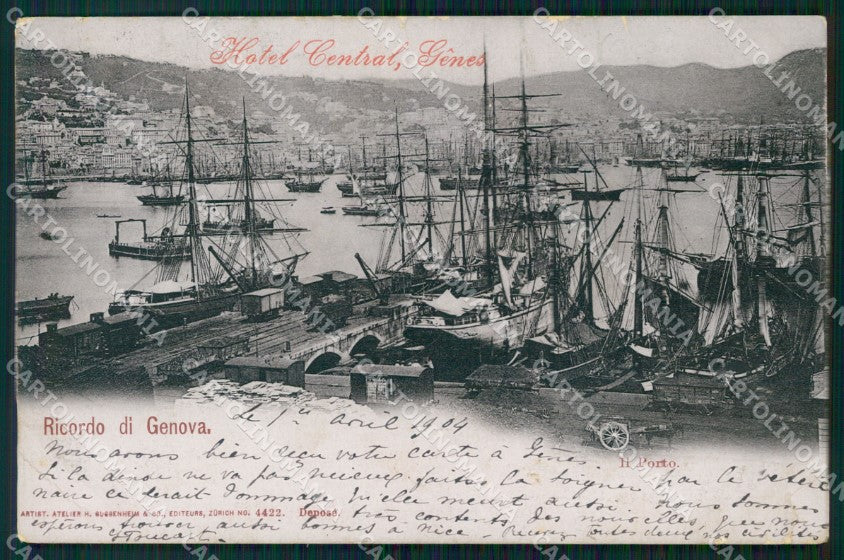 Hotel Central, Gênes
Ricordo di Genova.
Le 1er Avril 1904
Il Porto.
Nous avons bien reçu votre carte à Gênes
Si la dinde ne va pas mieux faites la soigner par le vétéri
naire ce serait dommage qu'elle meurt aussi nous sommes
ARTIST. ATELIER H. GUGGENHEIM & Co., EDITEURS, ZÜRICH NO. 4422. Deposé.
très contents des nouvelles, que nous
espérons trouver aussi bonnes à Nice
CARTOLINOMANIA.COM